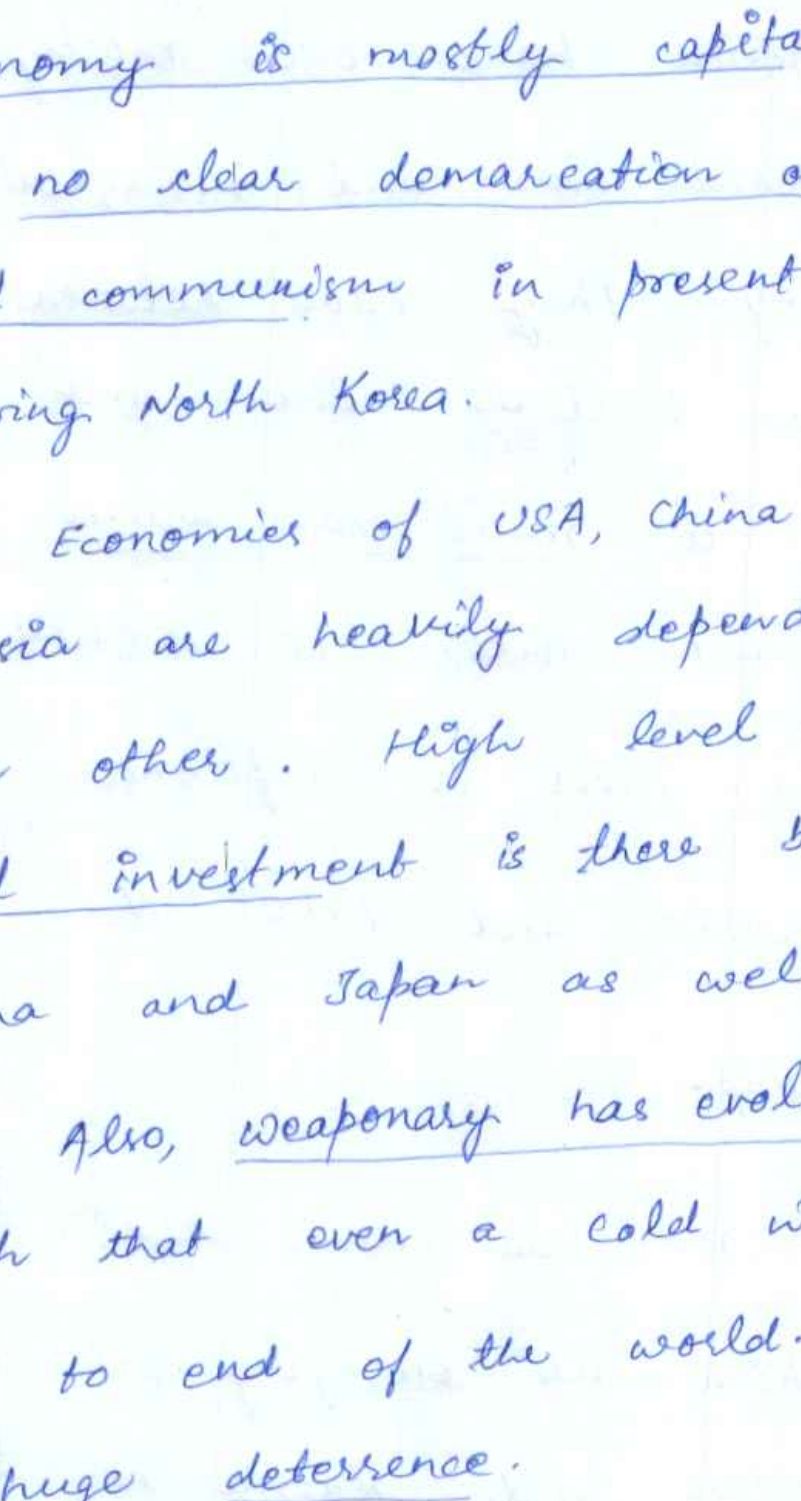 nomy is mostly capita
no clear demarcation o
d communism in present
ring North Korea.
Economies of USA, China
sia are heavily depend
other. High level
d investment is there b
na and Japan as wel
Also, weaponary has evol
h that even a cold w
to end of the world.
huge deterrence.